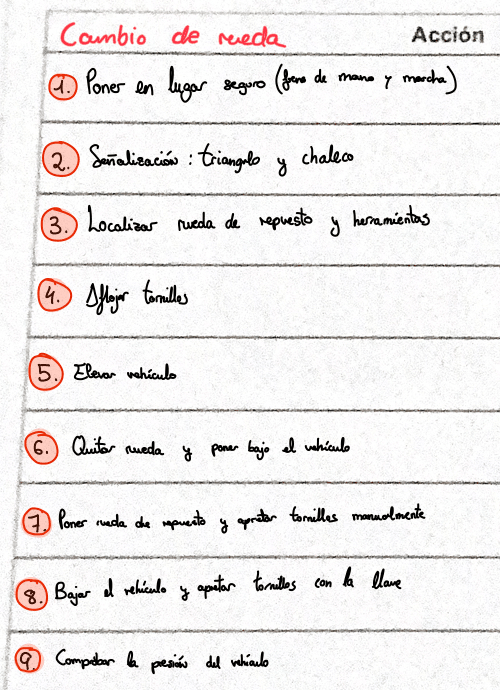 Cambio de rueda Acción
1. Poner en lugar seguro (freno de mano y marcha)
2. Señalización: triangulo y chaleco
3. Localizar rueda de repuesto y herramientas
4. Aflojar tornillos
5. Elevar vehículo
6. Quitar rueda y poner bajo el vehículo
7. Poner rueda de repuesto y apretar tornillos manualmente
8. Bajar el vehículo y apretar tornillos con la llave
9. Comprobar la presión del vehículo